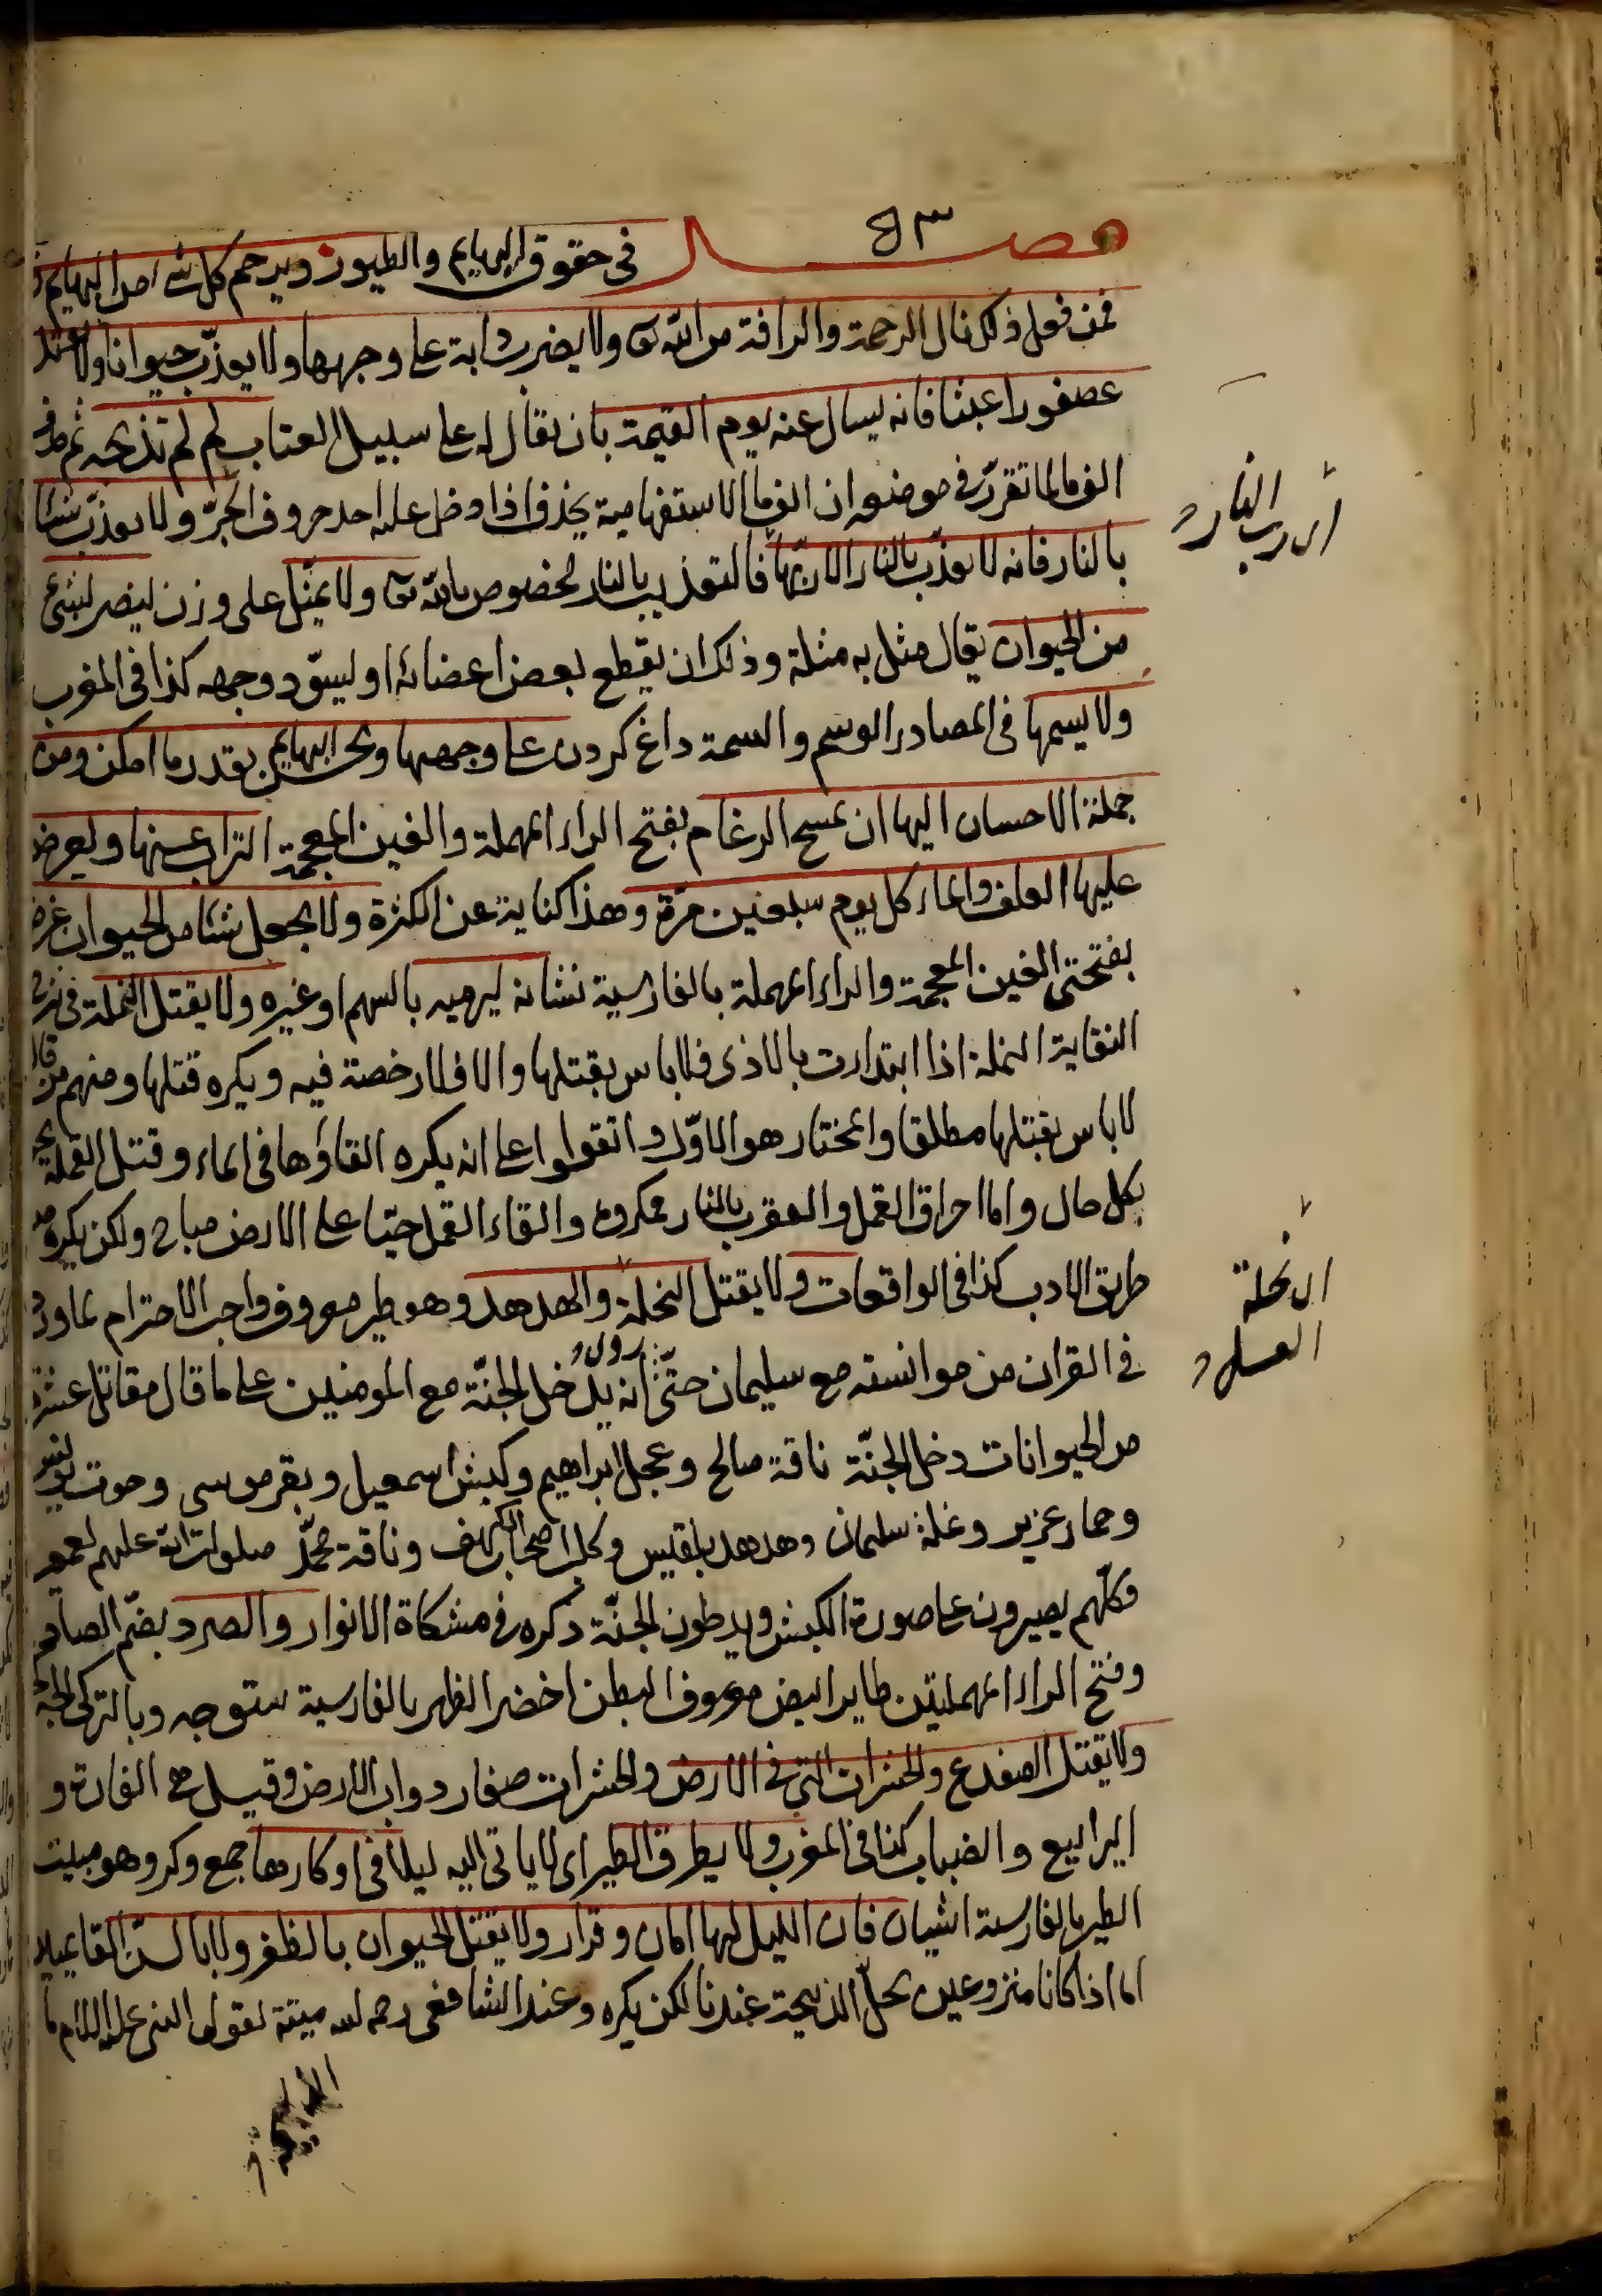 فصل ٥٣ في حقوق البهايم والطيور ويرحم كل شيء من البهايم
فمن فعل ذلك نال الرحمة والرافة من الله تعالى ولا يضرب دابة على وجهها ولا يعذب حيوانا ولا يقتل
عصفورا عبثا فانه يسال عنه يوم القيمة بان يقال له على سبيل العتاب لم لم تذبحه ثم حذف
الف ما لما تقرر في موضعه ان الف ما الاستفهامية يحذف اذا دخل عليه احد حروف الجر ولا يعذب شيئا
بالنار فانه لا يعذب بالنار الا ربها فالتعذيب بالنار مخصوص بالله تعالى ولا يمثل على وزن ينصر لشئ
من الحيوان يقال مثل به مثلة وذلك ان يقطع بعض اعضائه او ليسود وجهه كذا في المغرب
ولا يسمها في المصادر الوسم والسمة داغ كردن على وجهها ويحسن البهايم بقدر ما امكن ومن
جملة الاحسان اليها ان يمسح الرغام بفتح الراء المهملة والغين المعجمة التراب عنها ويعرض
عليها العلف والماء كل يوم سبعين مرة وهذا كناية عن الكثرة ولا يجعل شيئا من الحيوان غرضا
بفتحتي الغين المعجمة والراء المهملة بالفارسية نشانه ليرميه بالسهم او غيره ولا يقتل النملة في شرح
النقاية النملة اذا ابتدات بالاذى فلا باس بقتلها والا فلا رخصة فيه ويكره قتلها ومنهم من قال
لا باس بقتلها مطلقا والمختار هو الاول واتقوا على انه يكره القاؤها في الماء وقتل القملة يجوز
بكل حال واما احراق القمل والعقرب بالنار فمكروه والقاء القمل حيا على الارض مباح ولكن يكره من
طريق الادب كذا في الواقعات ولا يقتل النحلة والهدهد وهو طير معروف واجب الاحترام لما ورد
في القران من موانسته مع سليمان حتى انه يدخل الجنة مع المومنين على ما قال مقاتل عشرة
من الحيوانات دخل الجنة ناقة صالح وعجل ابراهيم وكبش اسمعيل وبقر موسى وحوت يونس
وحمار عزير ونملة سليمان وهدهد بلقيس وكلب اصحاب الكهف وناقة محمد صلوات الله عليهم اجمعين
فكلهم يصيرون على صورة الكبش ويدخلون الجنة ذكره في مشكاة الانوار والصرد بضم الصاد
وفتح الراء المهملتين طاير ابيض معروف البطن اخضر الظهر بالفارسية ستوجه وبالتركى
ولا يقتل الضفدع والحشرات التي في الارض والحشرات صغار دواب الارض وقيل هي الفارة و
اليرابيع والضباب كذا في المغرب ولا يطرق الطير اى لا ياتى اليه ليلا في اوكارها جمع وكر وهو مبيت
الطير بالفارسية اشيان فان الليل لها امان وقرار ولا يقتل الحيوان بالظفر ولا بالسن القاعيين
اما اذا كانا منزوعين يحل الذبيحة عندنا لكن يكره وعند الشافعى رحمه الله ميتة لقول النبي عليه السلام
اى رب النار
اى نحلة
العسل